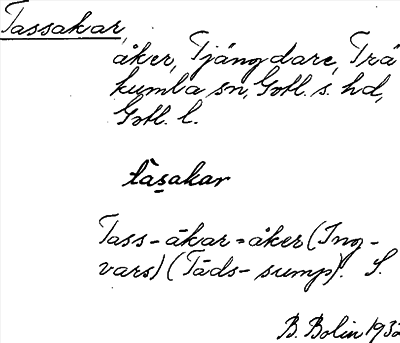 Tassakar,
åker, Tjängdare, Trä
kumla sn, Gotl. s. hd,
Gotl. l.
tàsakar
Tass-åkar-åker (Ing-
vars) (Täds-sump). S.
B. Bolin 1932